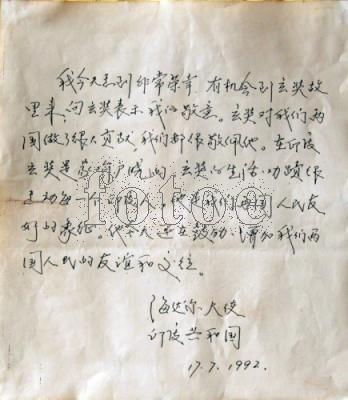 我今天感到非常荣幸，有机会到玄奘故
里来，向玄奘表示我的敬意。玄奘对我们两
国做了很大贡献，我们都很敬佩他。在印度
玄奘是家喻户晓的，玄奘的生活、功绩很
感动每一个印度人，他是我们两国人民友
好的象征。他今天还在鼓励、增加我们两
国人民的友谊和交往。
海达尔大使
印度共和国
17.7.1992.
fotoe